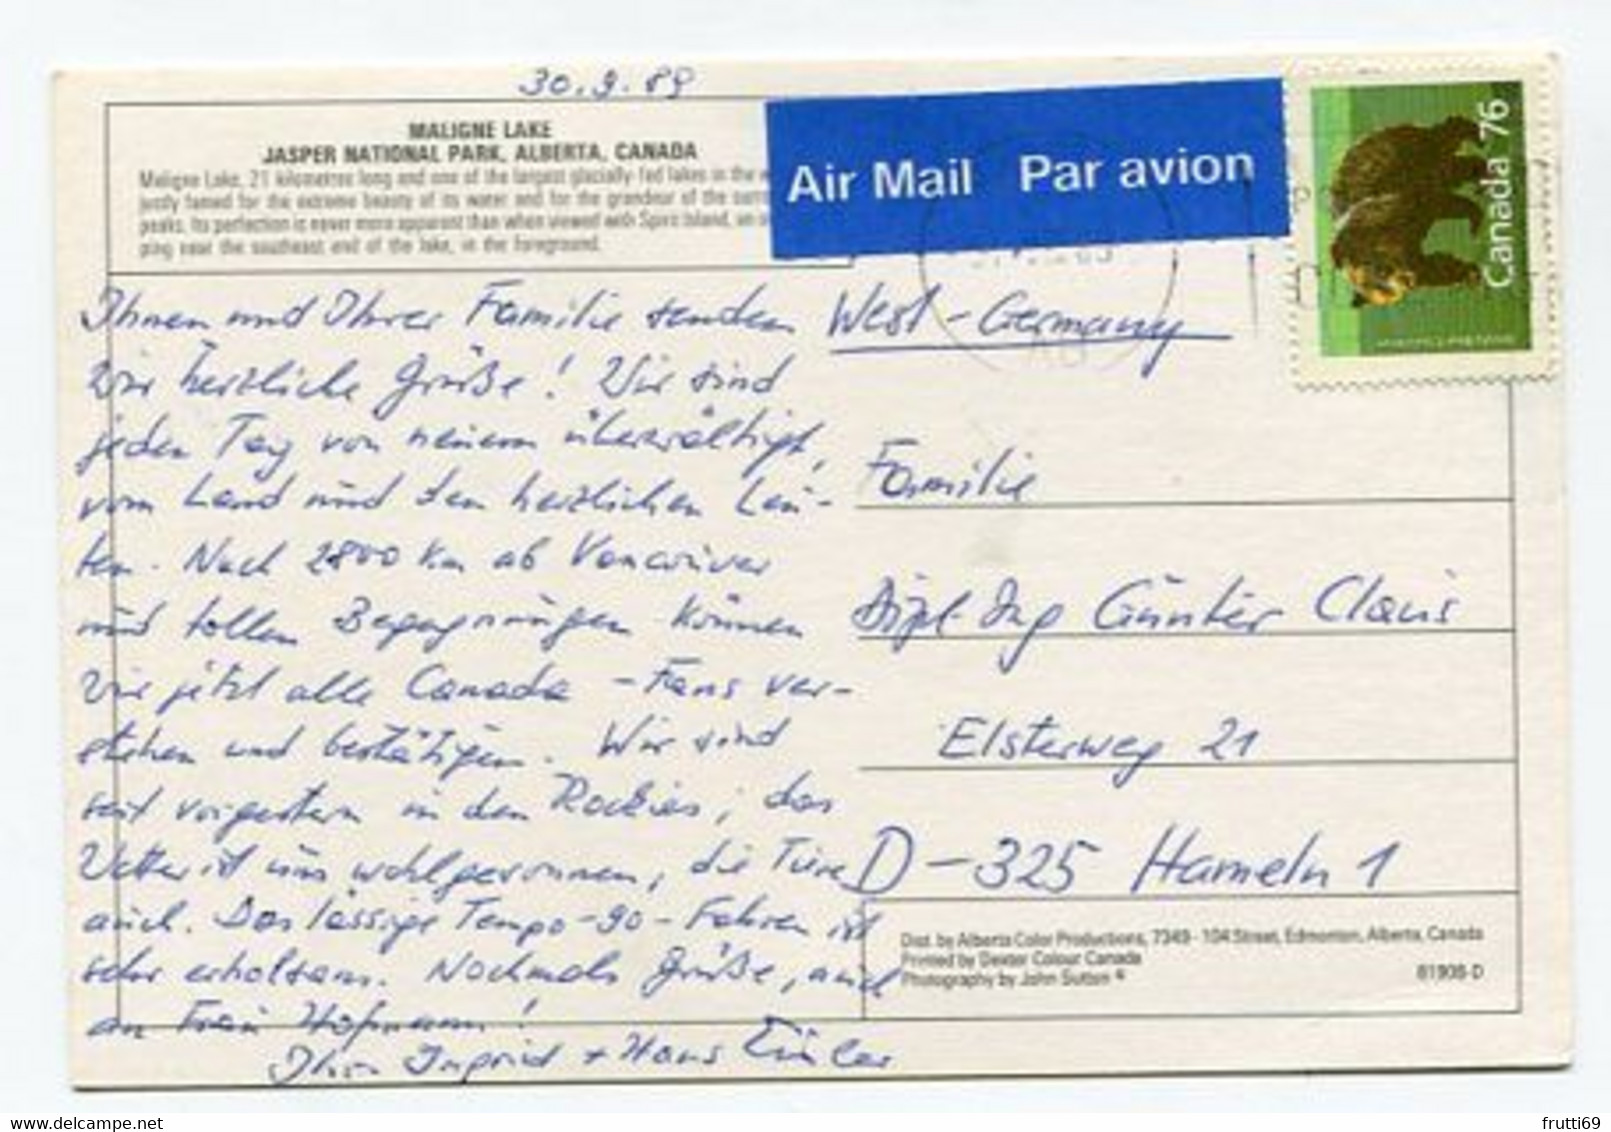 30.9.89
MALIGNE LAKE
JASPER NATIONAL PARK, ALBERTA, CANADA
Maligne Lake, 21 kilometres long and one of the largest glacially-fed lakes in the
justly famed for the extreme beauty of its water and for the grandeur of the
peaks. Its perfection is never more apparent than when viewed with Spirit Island, an
ping near the southeast end of the lake, in the foreground.
Air Mail Par avion
Canada 76
Ihnen und Ihrer Familie senden
wir herzliche Grüße! Wir sind
jeden Tag von neuem überwältigt,
vom Land und den herzlichen Leu-
ten. Nach 2800 km ab Vancouver
und tollen Begegnungen können
wir jetzt alle Canada-Fans ver-
stehen und bestätigen. Wir sind
seit vorgestern in den Rockies; das
Wetter ist uns wohlgesonnen, die Tiere
auch. Das lässige Tempo-90-Fahren ist
sehr erholsam. Nochmals Grüße, auch
an Frau Hofmann!
Ihre Ingrid + Hans
West-Germany
Familie
Dipl-Ing Günter Claus
Elsterweg 21
D-325 Hameln 1
Dist. by Alberta Color Productions, 7349 - 104 Street, Edmonton, Alberta, Canada
Printed by Dexter Colour Canada
Photography by John Sutton
61908-D
frutti69